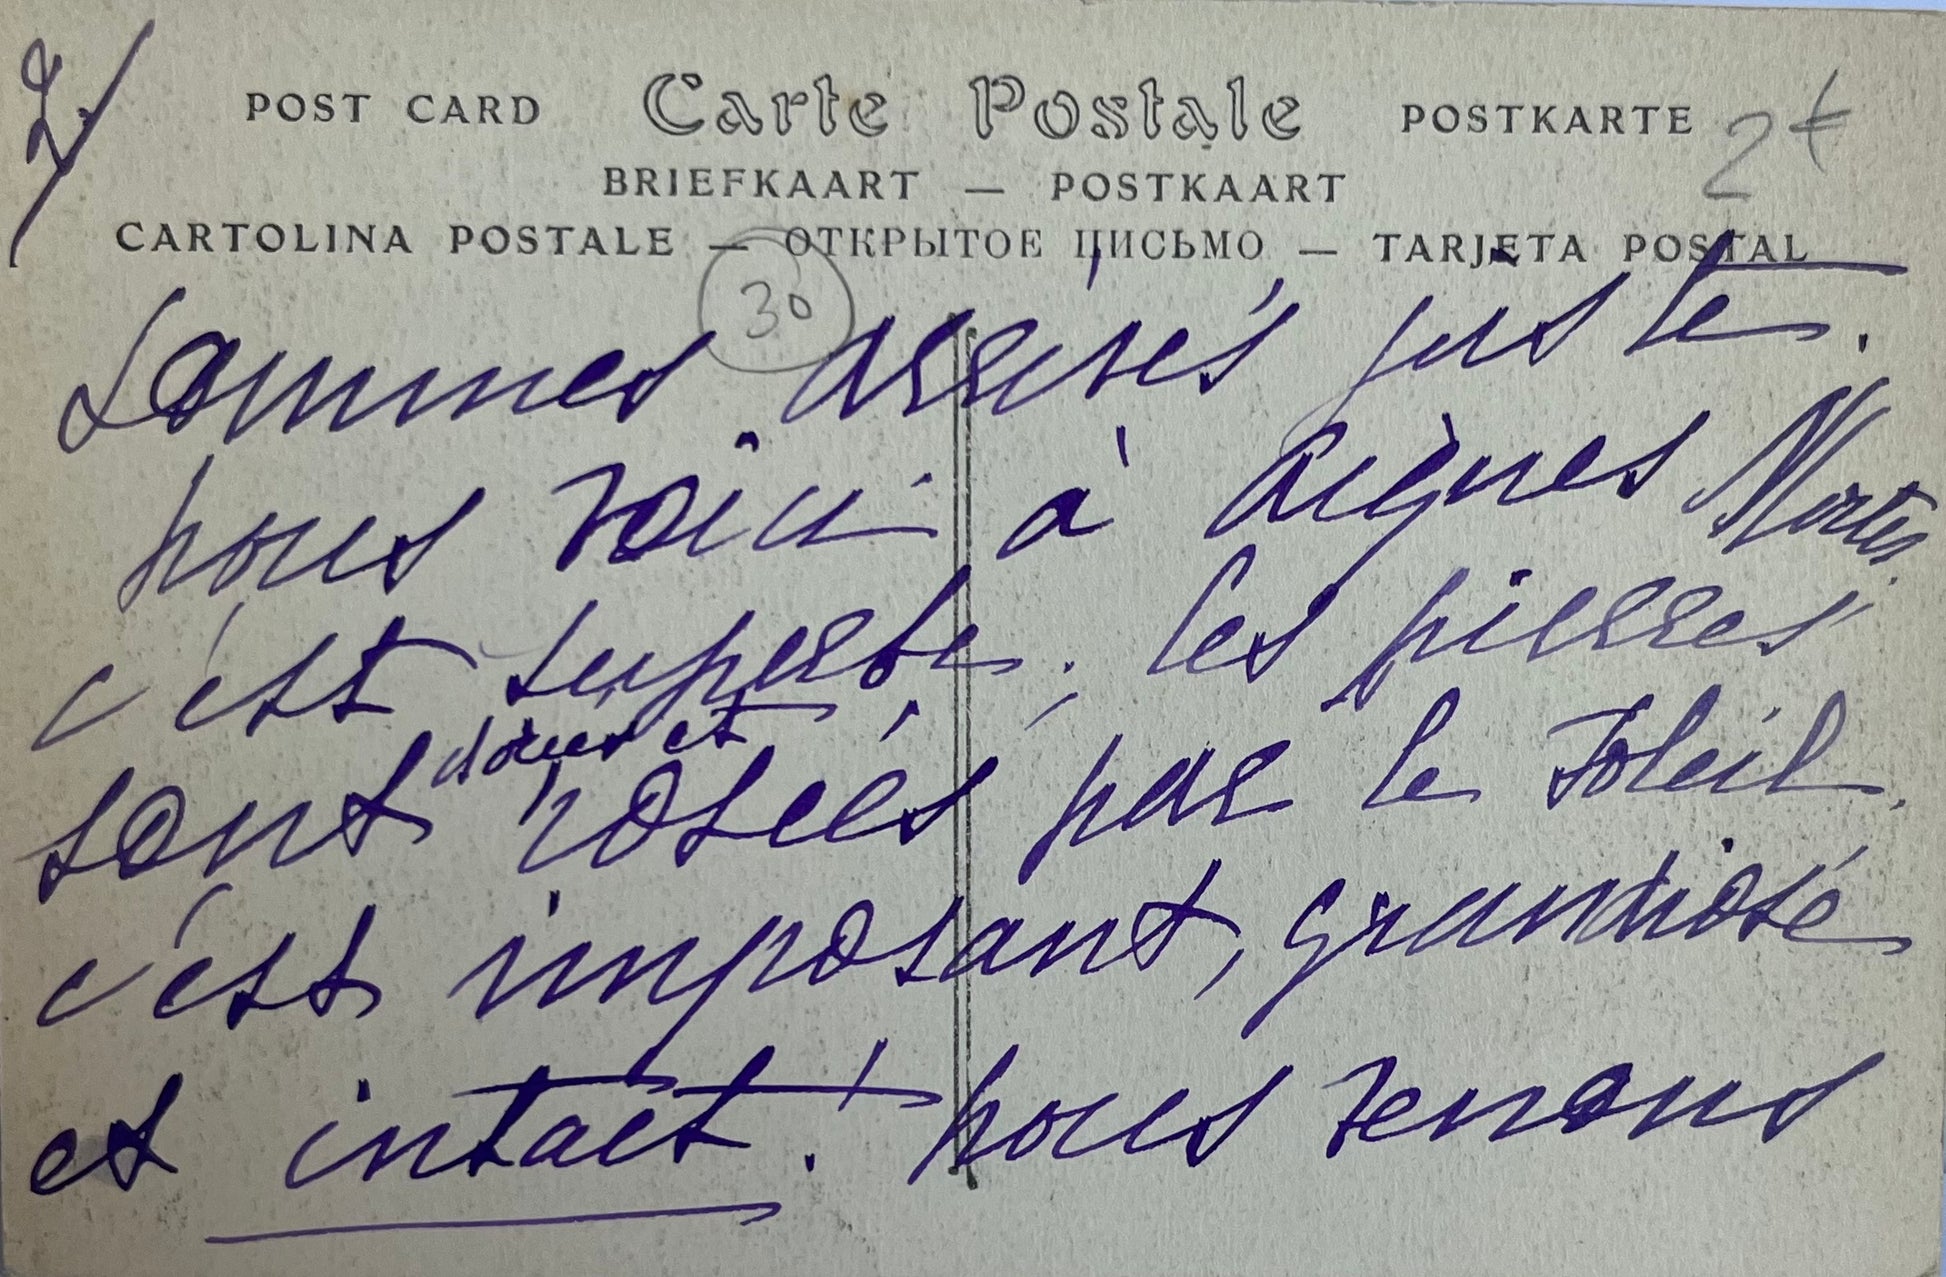 2/
POST CARD Carte Postale POSTKARTE
2€
BRIEFKAART — POSTKAART
CARTOLINA POSTALE — ОТКРЫТОЕ ПИСЬМО — TARJETA POSTAL
30
sommes arrivés juste.
nous voici à Aigues Mortes.
c'est superbe, les pierres
sont dorées et rosées par le soleil.
c'est imposant, grandiose
et intact ! nous venons